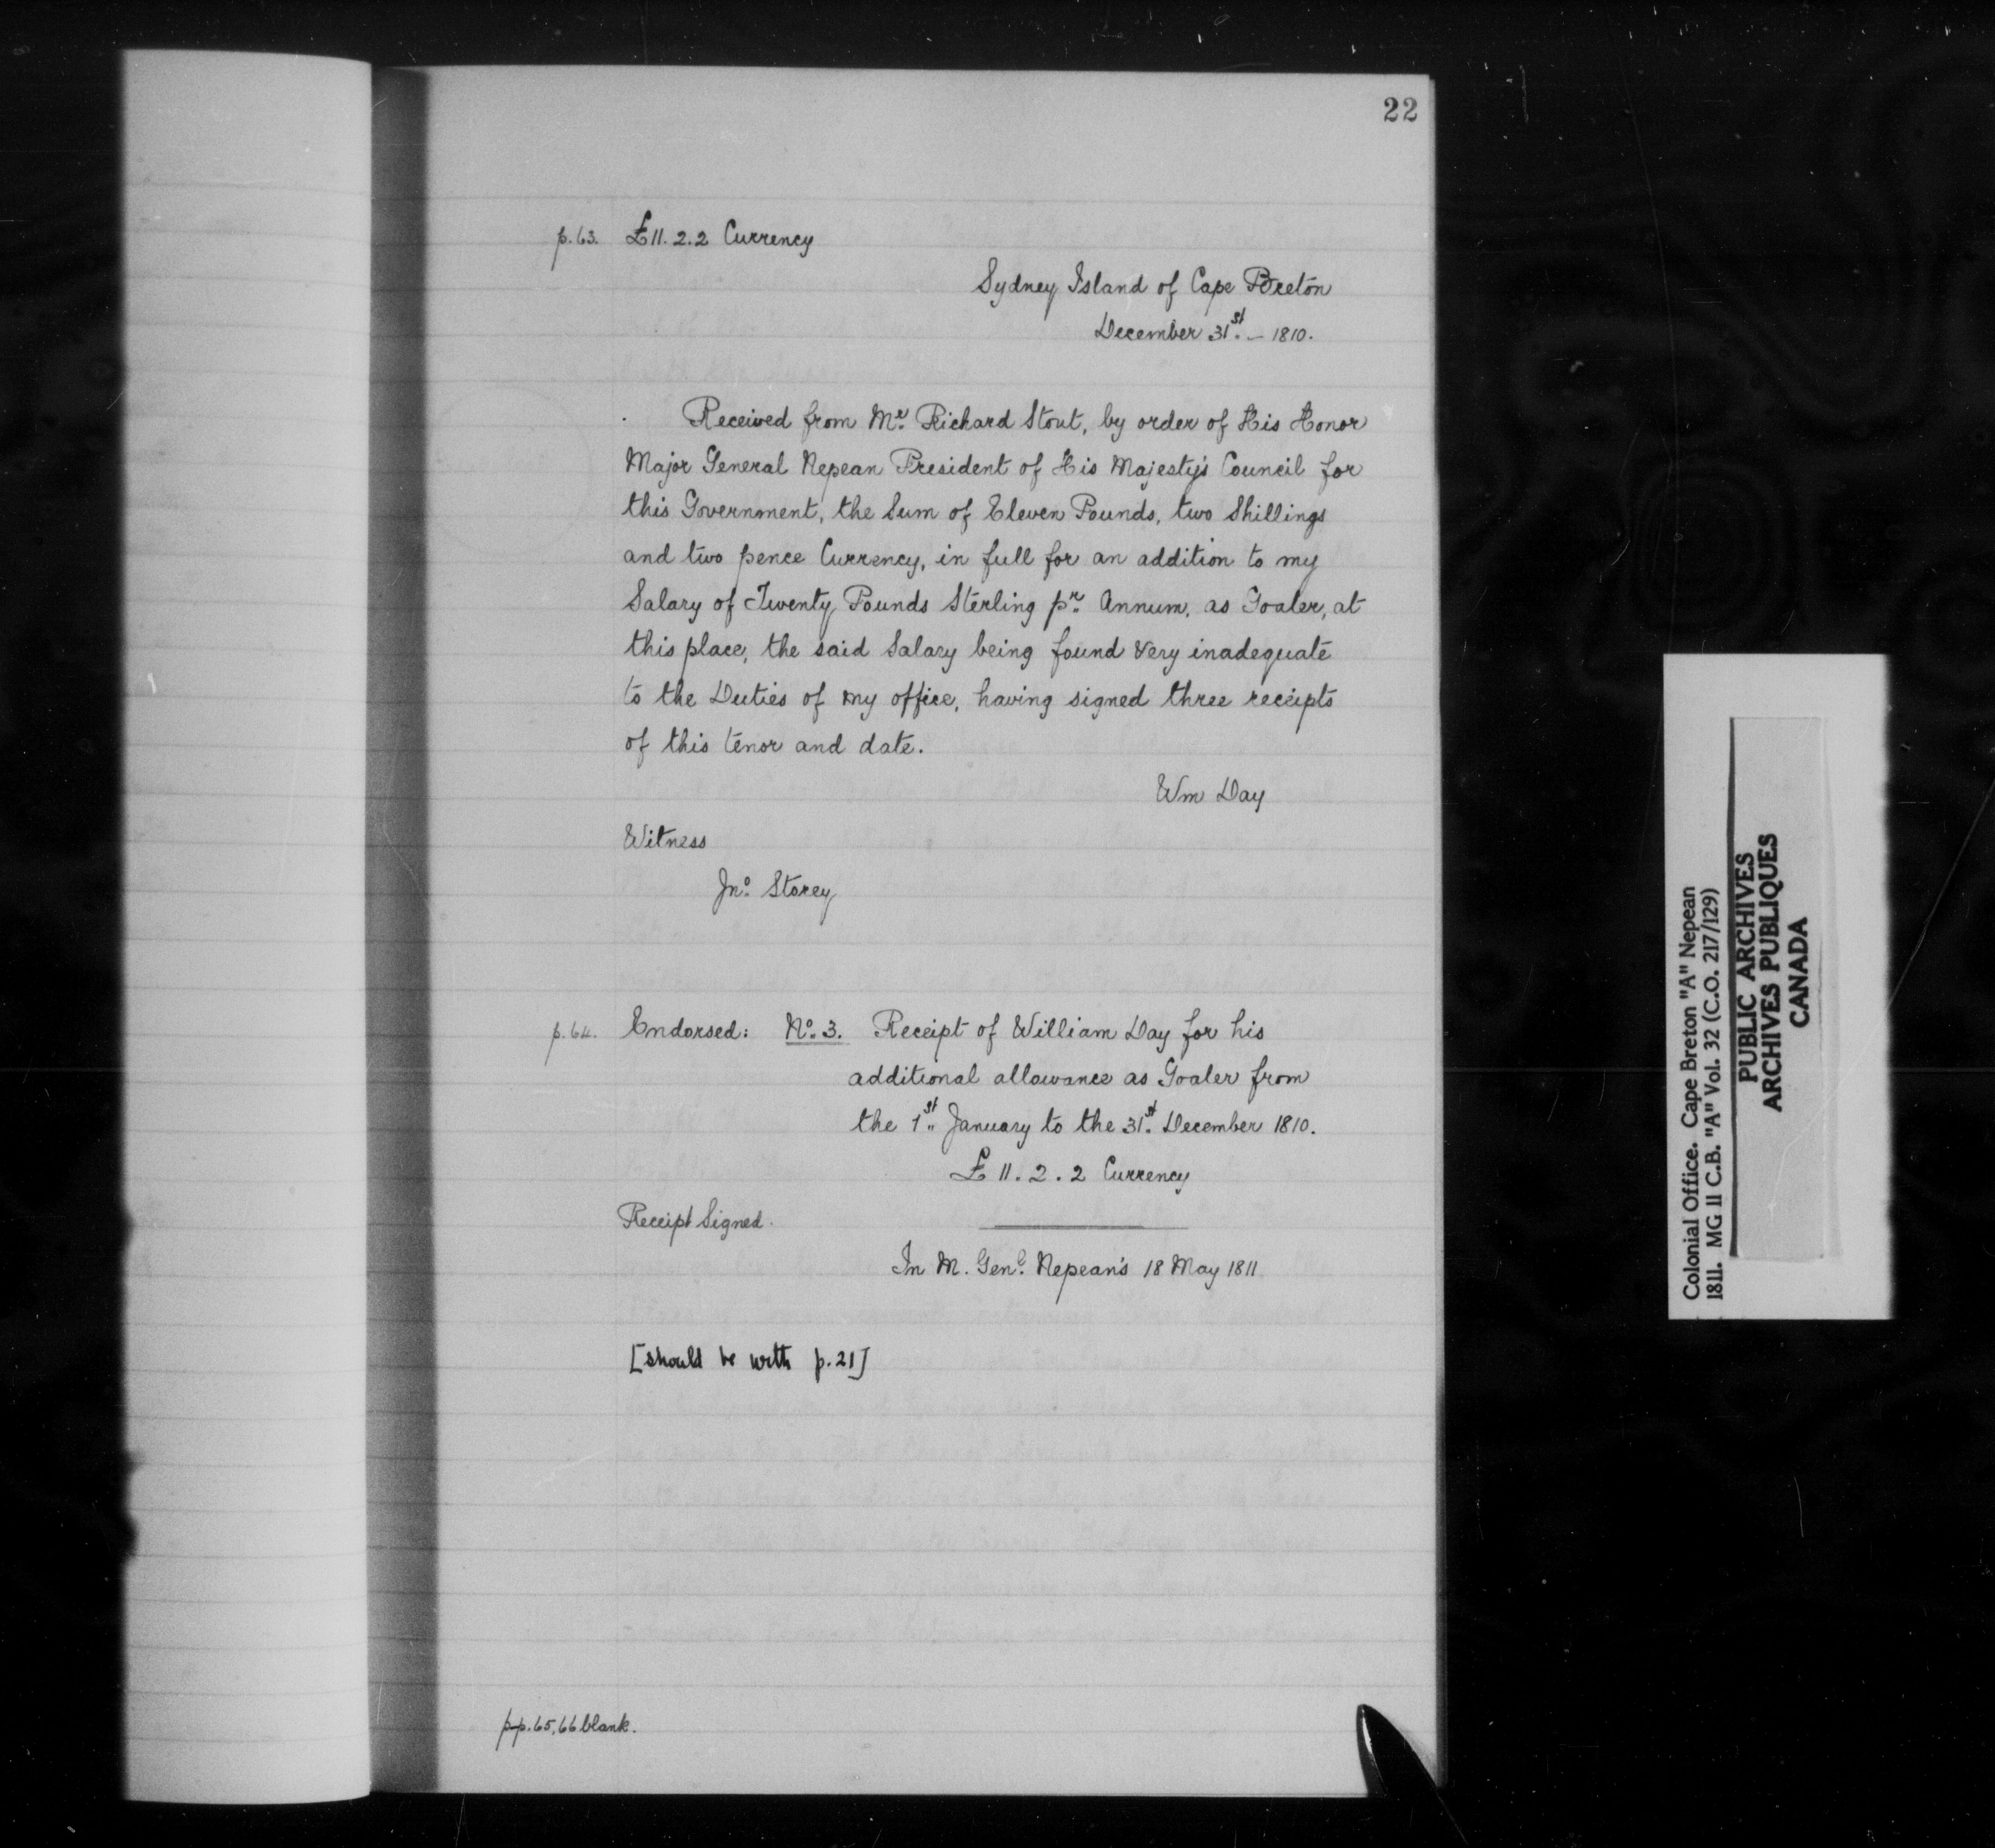 22
p.63. £11.2.2 Currency
Sydney Island of Cape Breton
December 31st. – 1810.
Received from Mr. Richard Stout, by order of His Honor
Major General Nepean President of His Majesty's Council for
this Government, the Sum of Eleven Pounds, two Shillings
and two pence Currency, in full for an addition to my
Salary of Twenty Pounds Sterling pr. Annum, as Goaler, at
this place, the said Salary being found very inadequate
to the Duties of my office, having signed three receipts
of this tenor and date.
Wm Day
Witness
Jno. Storey
p.64. Endorsed: No. 3. Receipt of William Day for his
additional allowance as Goaler from
the 1st. January to the 31st. December 1810.
£ 11. 2. 2 Currency
Receipt Signed.
In M. Genl. Nepean's 18 May 1811
[should be with p.21]
pp.65,66 blank.
Colonial Office. Cape Breton "A" Nepean
1811. MG 11 C.B. "A" Vol. 32 (C.O. 217/129)
PUBLIC ARCHIVES
ARCHIVES PUBLIQUES
CANADA